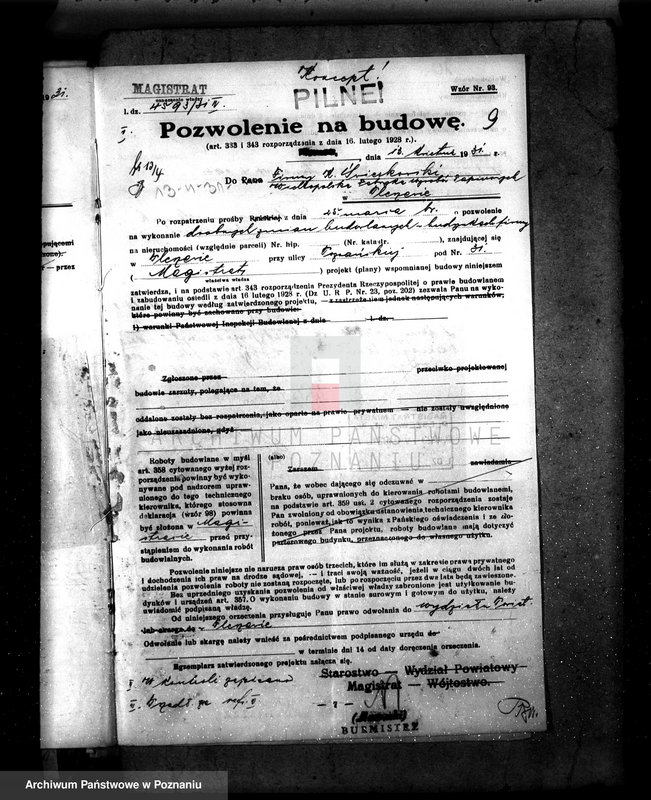 Koncept!
MAGISTRAT
PILNE!
Wzór Nr. 93.
l. dz. 4593/31 II
I.
Pozwolenie na budowę.
9
(art. 333 i 343 rozporządzenia z dnia 16. lutego 1928 r.).
dnia 13. kwietnia 1931 r.
13/4
13-4-31
Do Pana Firmy
Wielkopolska
w
Po rozpatrzeniu prośby z dnia 15 marca br. o pozwolenie
na wykonanie drobnych zmian budowlanych w budynkach firmy
na nieruchomości (względnie parceli) Nr. hip. (Nr. katadr. ), znajdującej się
w przy ulicy pod Nr. 31.
( Magistrat ) projekt (plany) wspomnianej budowy niniejszem
właściwa władza
zatwierdza, i na podstawie art. 343 rozporządzenia Prezydenta Rzeczypospolitej o prawie budowlanem
i zabudowaniu osiedli z dnia 16 lutego 1928 r. (Dz. U. R. P. Nr. 23, poz. 202) zezwala Panu na wyko-
nanie tej budowy według zatwierdzonego projektu, — z zastrzeżeniem jednak następujących warunków,
które powinny być zachowane przy budowie:
1) warunki Państwowej Inspekcji Budowlanej z dnia l. dz.
Zgłoszone przez przeciwko projektowanej
budowie zarzuty, polegające na tem, że
oddalone zostały bez rozpatrzenia, jako oparte na prawie prywatnem — nie zostały uwzględnione
jako nieuzasadnione, gdyż
ARCHIWUM PAŃSTWOWE
W POZNANIU
Roboty budowlane w myśl
art. 358 cytowanego wyżej roz-
porządzenia powinny być wyko-
nywane pod nadzorem upraw-
nionego do tego technicznego
kierownika, którego stosowna
deklaracja (wzór 98) powinna
być złożona w Magi-
stracie przed przy-
stąpieniem do wykonania robót
budowlanych.
(albo)
Zarazem zawiadamia
Pana, że wobec dającego się odczuwać w
braku osób, uprawnionych do kierowania robotami budowlanemi,
na podstawie art. 359 ust. 2 cytowanego rozporządzenia zostaje
Pan zwolniony od obowiązku ustanowienia technicznego kierownika
robót, ponieważ, jak to wynika z Pańskiego oświadczenia i ze zło-
żonego przez Pana projektu, roboty budowlane mają dotyczyć
parterowego budynku, przeznaczonego do własnego użytku.
Pozwolenie niniejsze nie narusza praw osób trzecich, które im służą w zakresie prawa prywatnego
i dochodzenia ich praw na drodze sądowej, — i traci swoją ważność, jeżeli w ciągu dwóch lat od
udzielenia pozwolenia roboty nie zostaną rozpoczęte, lub po rozpoczęciu przez dwa lata będą zawieszone.
Bez uprzedniego uzyskania pozwolenia od właściwej władzy zabronione jest użytkowanie bu-
dynków i urządzeń art. 357. O wykonaniu budowy w stanie surowym i gotowym do użytku, należy
uwiadomić podpisaną władzę.
Od niniejszego orzeczenia przysługuje Panu prawo odwołania do Wydziału Powiat.
lub skarga do
Odwołanie lub skargę należy wnieść za pośrednictwem podpisanego urzędu do
w terminie dni 14 od daty doręczenia orzeczenia.
Egzemplarz zatwierdzonego projektu załącza się.
Starostwo — Wydział Powiatowy
Magistrat — Wójtostwo.
II w kontroli zapisano
III
BURMISTRZ
Archiwum Państwowe w Poznaniu